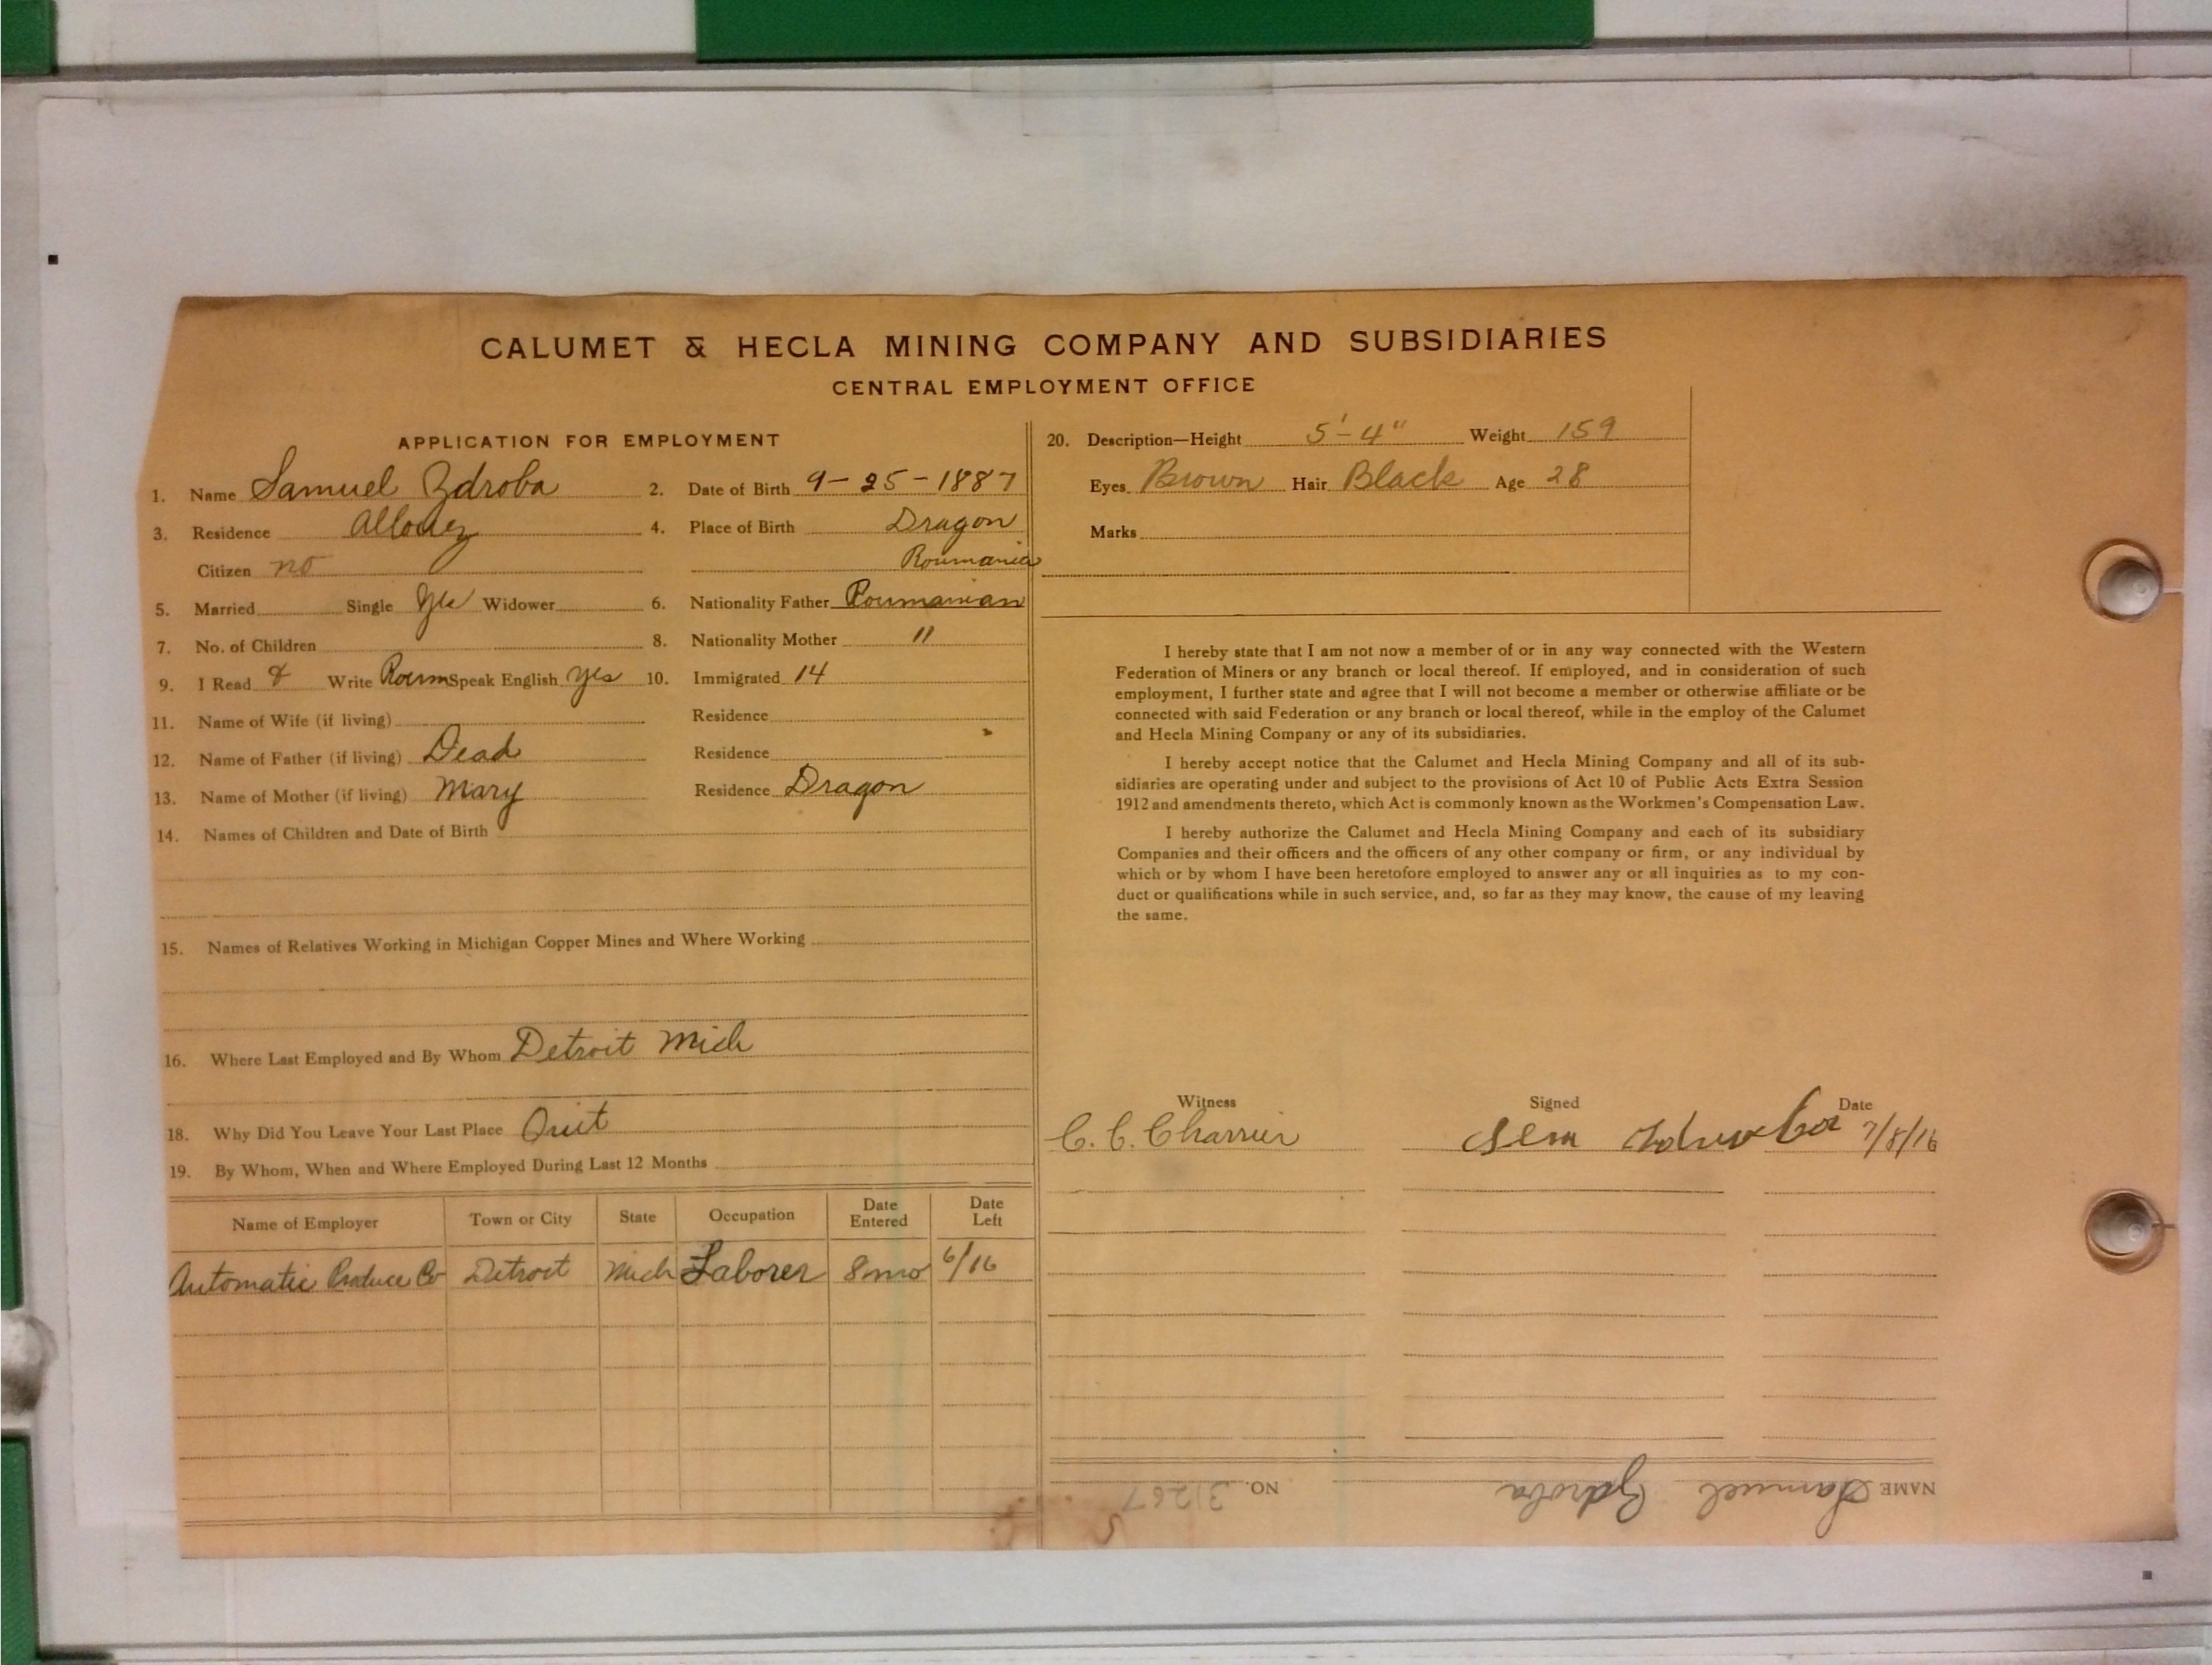 CALUMET & HECLA MINING COMPANY AND SUBSIDIARIES
CENTRAL EMPLOYMENT OFFICE
APPLICATION FOR EMPLOYMENT
1. Name Samuel Zdroba 2. Date of Birth 9-25-1887
3. Residence Allouez 4. Place of Birth Dragon
Citizen no Roumania
5. Married Single Yes Widower 6. Nationality Father Roumanian
7. No. of Children 8. Nationality Mother "
9. I Read & Write Roum Speak English Yes 10. Immigrated 14
11. Name of Wife (if living) Residence
12. Name of Father (if living) Dead Residence
13. Name of Mother (if living) Mary Residence Dragon
14. Names of Children and Date of Birth
15. Names of Relatives Working in Michigan Copper Mines and Where Working
16. Where Last Employed and By Whom Detroit Mich
18. Why Did You Leave Your Last Place Quit
19. By Whom, When and Where Employed During Last 12 Months
Name of Employer Town or City State Occupation Date Entered Date Left
Automatic Produce Co Detroit Mich Laborer 8 mo 6/16
20. Description—Height 5'-4" Weight 159
Eyes Brown Hair Black Age 28
Marks
I hereby state that I am not now a member of or in any way connected with the Western
Federation of Miners or any branch or local thereof. If employed, and in consideration of such
employment, I further state and agree that I will not become a member or otherwise affiliate or be
connected with said Federation or any branch or local thereof, while in the employ of the Calumet
and Hecla Mining Company or any of its subsidiaries.
I hereby accept notice that the Calumet and Hecla Mining Company and all of its sub-
sidiaries are operating under and subject to the provisions of Act 10 of Public Acts Extra Session
1912 and amendments thereto, which Act is commonly known as the Workmen's Compensation Law.
I hereby authorize the Calumet and Hecla Mining Company and each of its subsidiary
Companies and their officers and the officers of any other company or firm, or any individual by
which or by whom I have been heretofore employed to answer any or all inquiries as to my con-
duct or qualifications while in such service, and, so far as they may know, the cause of my leaving
the same.
Witness Signed Date
C. C. Charrier 7/8/16
NAME Samuel Zdroba NO. 31267